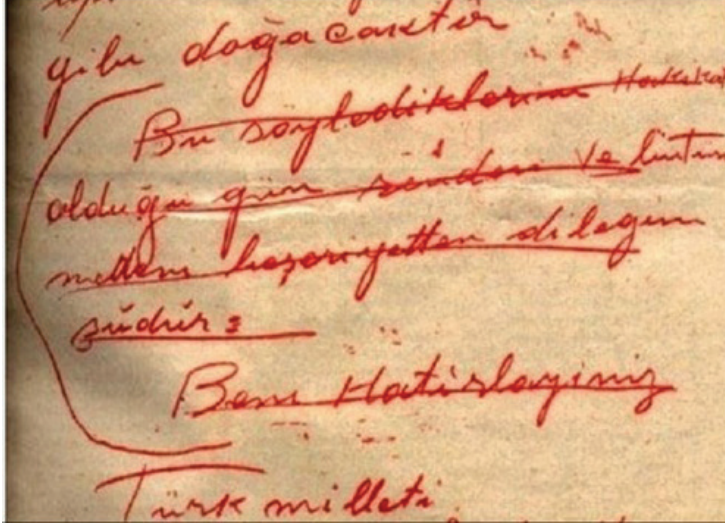 gibi doğacaktır
Bu söylediklerim Hakikat
olduğu gün senden Ve bütün
medeni beşeriyetten dileğim
şudur:
Beni Hatırlayınız
Türk milleti